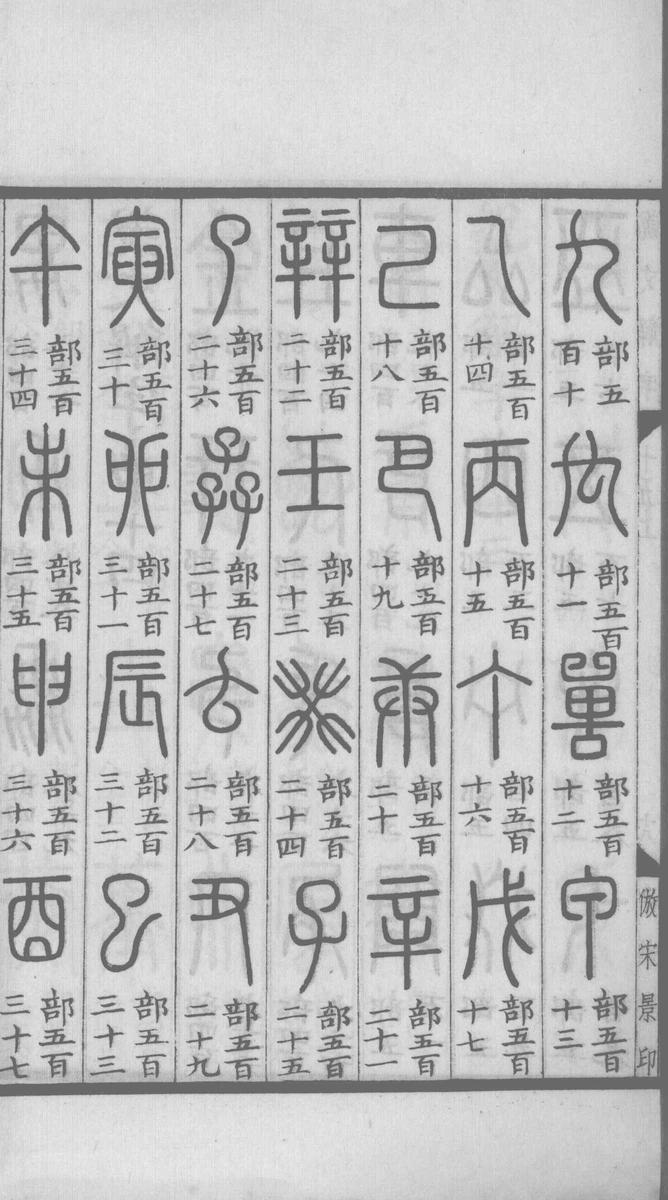 九部五百十 禸部五百十一 嘼部五百十二 甲部五百十三
乙部五百十四 丙部五百十五 丁部五百十六 戊部五百十七
己部五百十八 巴部五百十九 庚部五百二十 辛部五百二十一
辡部五百二十二 壬部五百二十三 癸部五百二十四 子部五百二十五
了部五百二十六 孨部五百二十七 𠫓部五百二十八 丑部五百二十九
寅部五百三十 卯部五百三十一 辰部五百三十二 巳部五百三十三
午部五百三十四 未部五百三十五 申部五百三十六 酉部五百三十七
倣宋景印